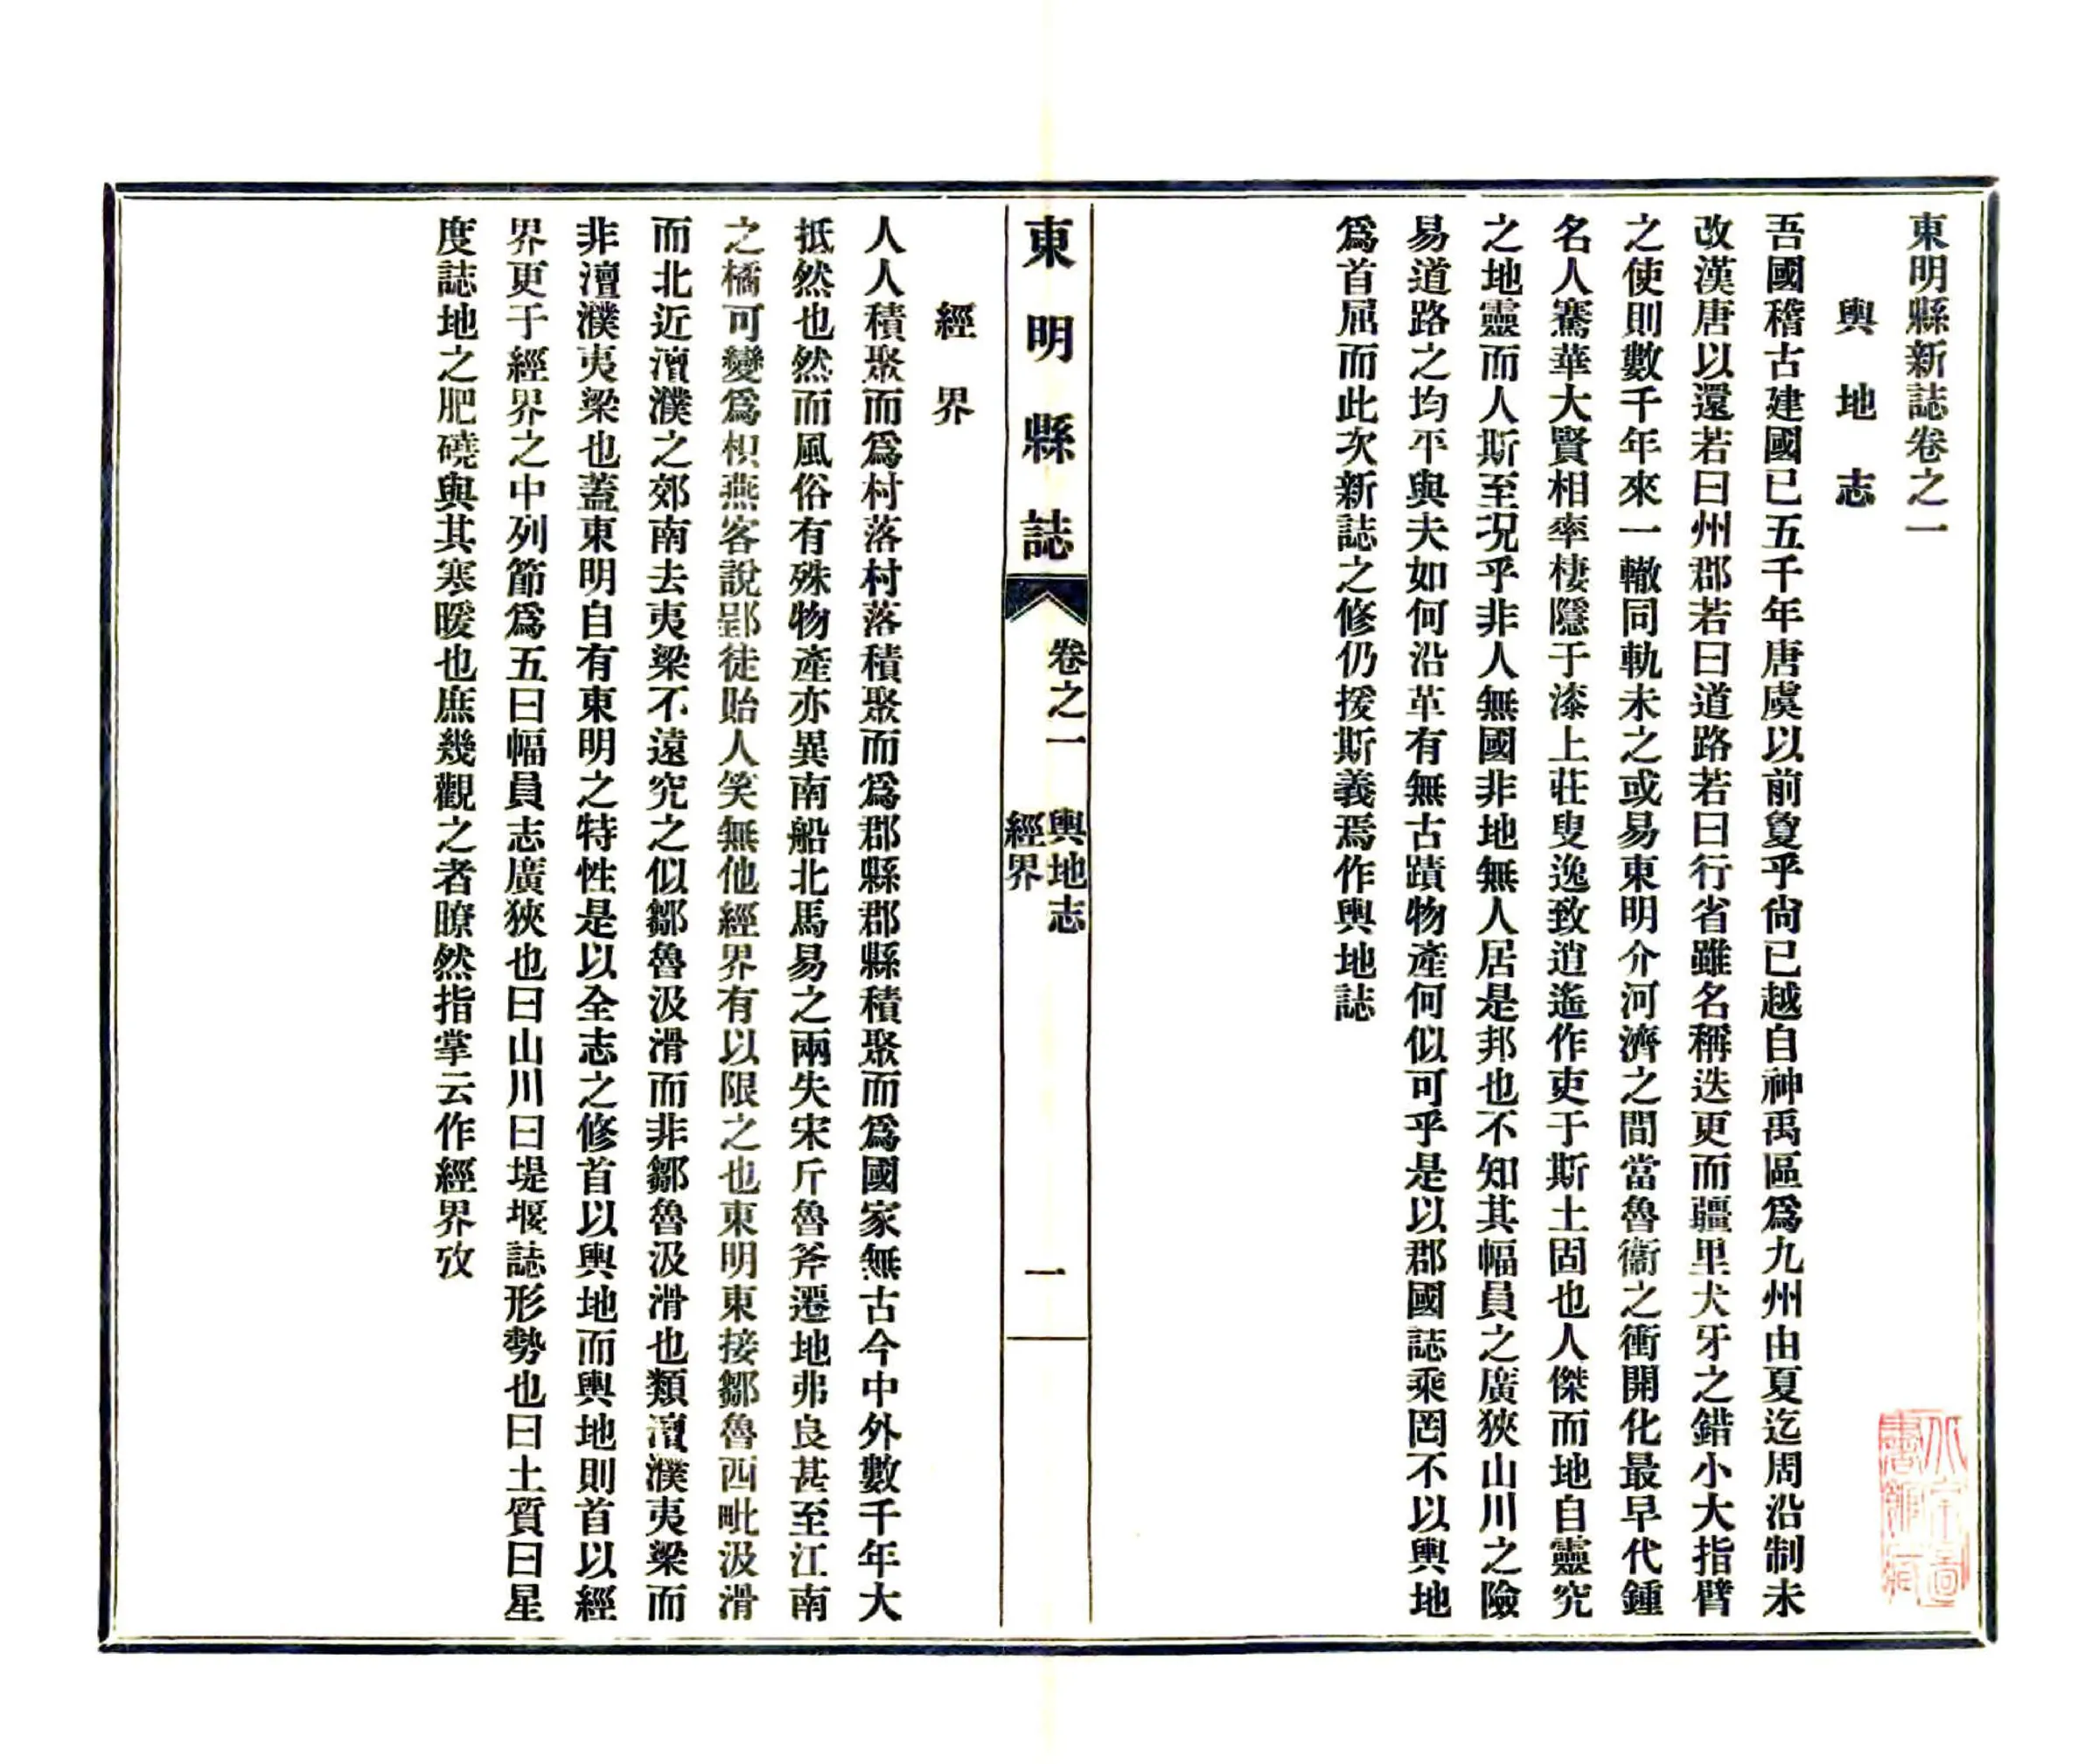 東明縣新誌卷之一
輿地志
吾國稽古建國已五千年唐虞以前敻乎尙已越自神禹區爲九州由夏迄周沿制未
改漢唐以還若曰州郡若曰道路若曰行省雖名稱迭更而疆里犬牙之錯小大指臂
之使則數千年來一轍同軌未之或易東明介河濟之間當魯衞之衝開化最早代鍾
名人騫華大賢相率棲隱于漆上莊叟逸致逍遙作吏于斯土固也人傑而地自靈究
之地靈而人斯至况乎非人無國非地無人居是邦也不知其幅員之廣狹山川之險
易道路之均平與夫如何沿革有無古蹟物產何似可乎是以郡國誌乘罔不以輿地
爲首屈而此次新誌之修仍援斯義焉作輿地誌
東明縣誌
卷之一
輿地志
經界
一
經界
人人積聚而爲村落村落積聚而爲郡縣郡縣積聚而爲國家無古今中外數千年大
抵然也然而風俗有殊物產亦異南船北馬易之兩失宋斤魯斧遷地弗良甚至江南
之橘可變爲枳燕客說郢徒貽人笑無他經界有以限之也東明東接鄒魯西毗汲滑
而北近澶濮之郊南去夷梁不遠究之似鄒魯汲滑而非鄒魯汲滑也類澶濮夷梁而
非澶濮夷梁也蓋東明自有東明之特性是以全志之修首以輿地而輿地則首以經
界更于經界之中列節爲五曰幅員志廣狹也曰山川曰堤堰誌形勢也曰土質曰星
度誌地之肥磽與其寒暖也庶幾觀之者瞭然指掌云作經界攷